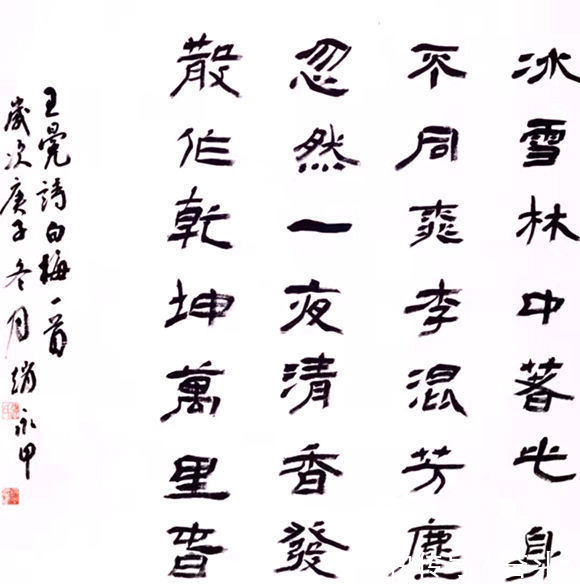 冰雪林中著此身
不同桃李混芳塵
忽然一夜清香發
散作乾坤萬里春
王冕詩白梅一首
歲次庚子冬月趙永甲